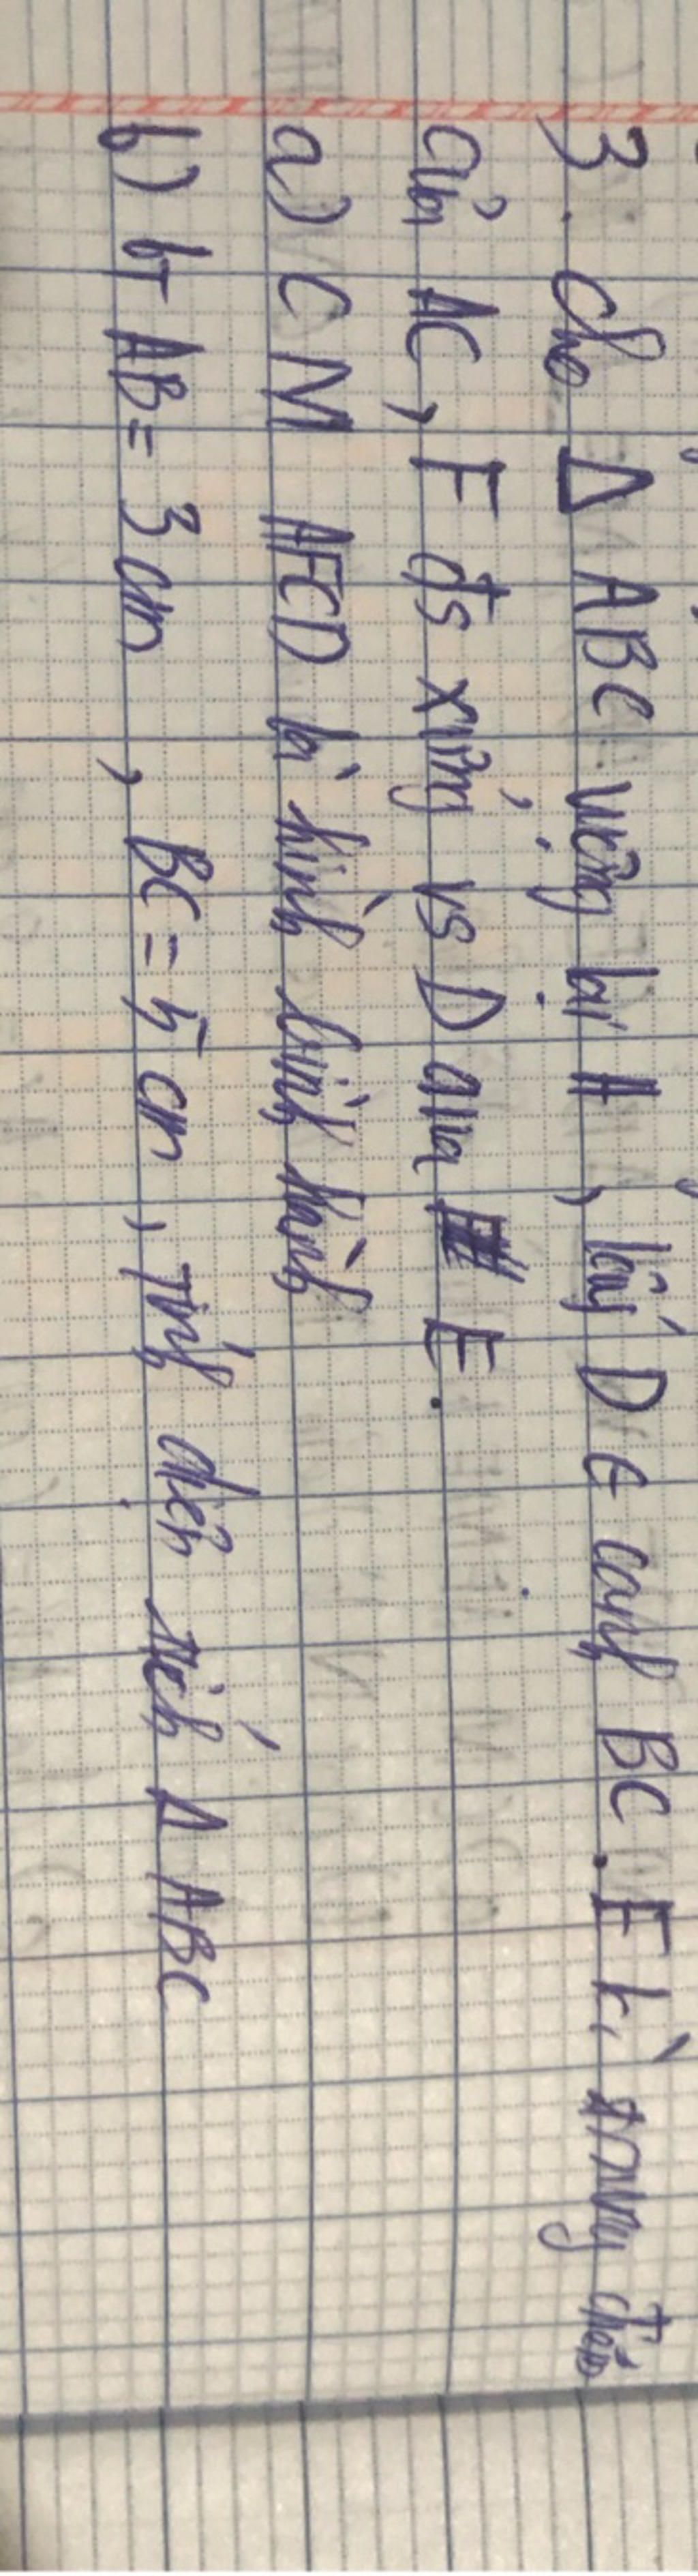 3. Cho Δ ABC vuông tại A, lấy D ∈ cạnh BC. E là trung điểm
của AC, F đx xứng vs D qua E.
a) CM AFCD là hình bình hành
b) bt AB = 3 cm, BC = 5 cm, Tính diện tích Δ ABC